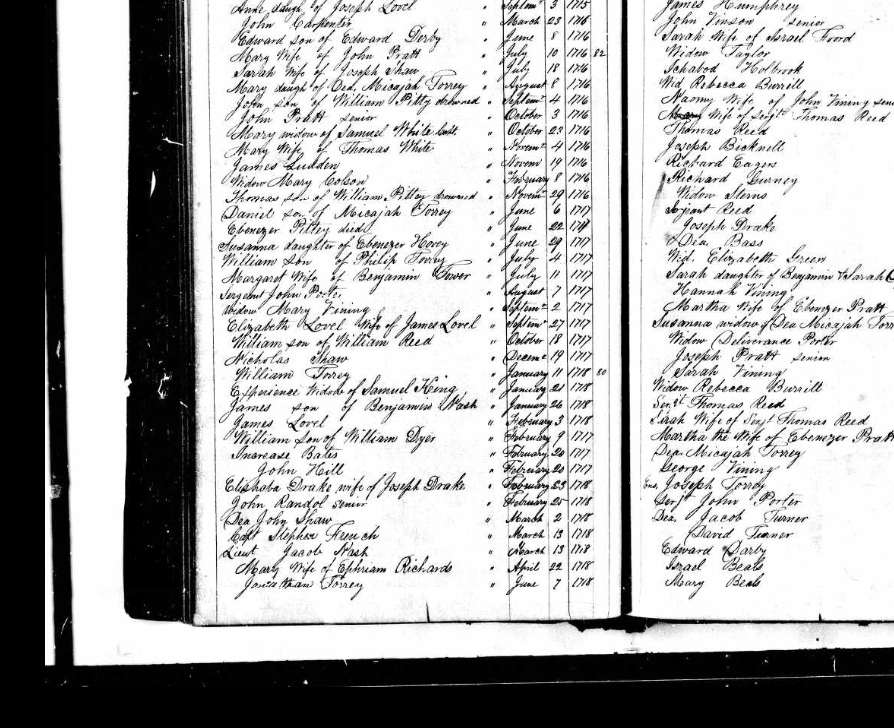 Anne daugh of Joseph Lovel " Septemr 3 1715
John Carpenter " March 23 1716
Edward son of Edward Derby " June 8 1716
Mary Wife of John Pratt " July 10 1716 82
Sarah Wife of Joseph Shaw " July 18 1716
Mary daugh of Dea. Micajah Torrey " August 8 1716
John son of William Pitty drowned " Septemr 4 1716
John Pratt senior " October 3 1716
Mary widow of Samuel White " October 23 1716
Mary Wife of Thomas White " Novemr 4 1716
James Ludden " Novem 19 1716
Widow Mary Colson " February 8 1716
Thomas son of William Pittey drowned " Novemr 29 1716
Daniel son of Micajah Torrey " June 6 1717
Ebenezer Pittey died " June 22 1717
Susanna daughter of Ebenezer Hovey " June 29 1717
William son of Philip Torrey " July 4 1717
Margaret Wife of Benjamin Tower " July 11 1717
Sergent John Porter " August 7 1717
Widow Mary Vining " Septemr 2 1717
Elizabeth Lovel Wife of James Lovel " Septemr 27 1717
William son of William Reed " October 18 1717
Nicholas Shaw " Decemr 19 1717
William Torrey " January 11 1718 80
Experience Widow of Samuel King " January 21 1718
James son of Benjamin Nash " January 26 1718
James Lovel " February 3 1718
William son of William Dyer " February 9 1717
Increase Bates " February 20 1717
John Hill " February 20 1717
Elishaba Drake wife of Joseph Drake " February 23 1718
John Randol senior " February 25 1718
Dea John Shaw " March 2 1718
Capt Stephen French " March 13 1718
Lieut Jacob Nash " March 13 1718
Mary Wife of Ephriam Richards " April 22 1718
Jonathan Torrey " June 7 1718
James Humphrey
John Vinson senior
Sarah Wife of Israel Foord
Widow Taylor
Ichabod Holbrook
Wid Rebecca Burrill
Nanny Wife of John Vining sen
Wife of Sergt Thomas Reed
Thomas Reed
Joseph Bicknell
Richard Eagers
Richard Gurney
Widow Sterns
Serjeant Reed
Joseph Drake
Dea Bass
Wid. Elizabeth Green
Sarah daughter of Benjamin & Sarah
Hannah Vining
Martha Wife of Ebenezer Pratt
Susanna widow of Dea Micajah Torr
Widow Deliverance Porter
Joseph Pratt senior
Sarah Vining
Widow Rebecca Burrill
Serjt Thomas Reed
Sarah Wife of Serjt Thomas Reed
Martha the Wife of Ebenezer Pratt
Dea Micajah Torrey
George Vining
Joseph Torrey
Serjt John Porter
Dea. Jacob Turner
David Turner
Edward Darby
Israel Beals
Mary Beals